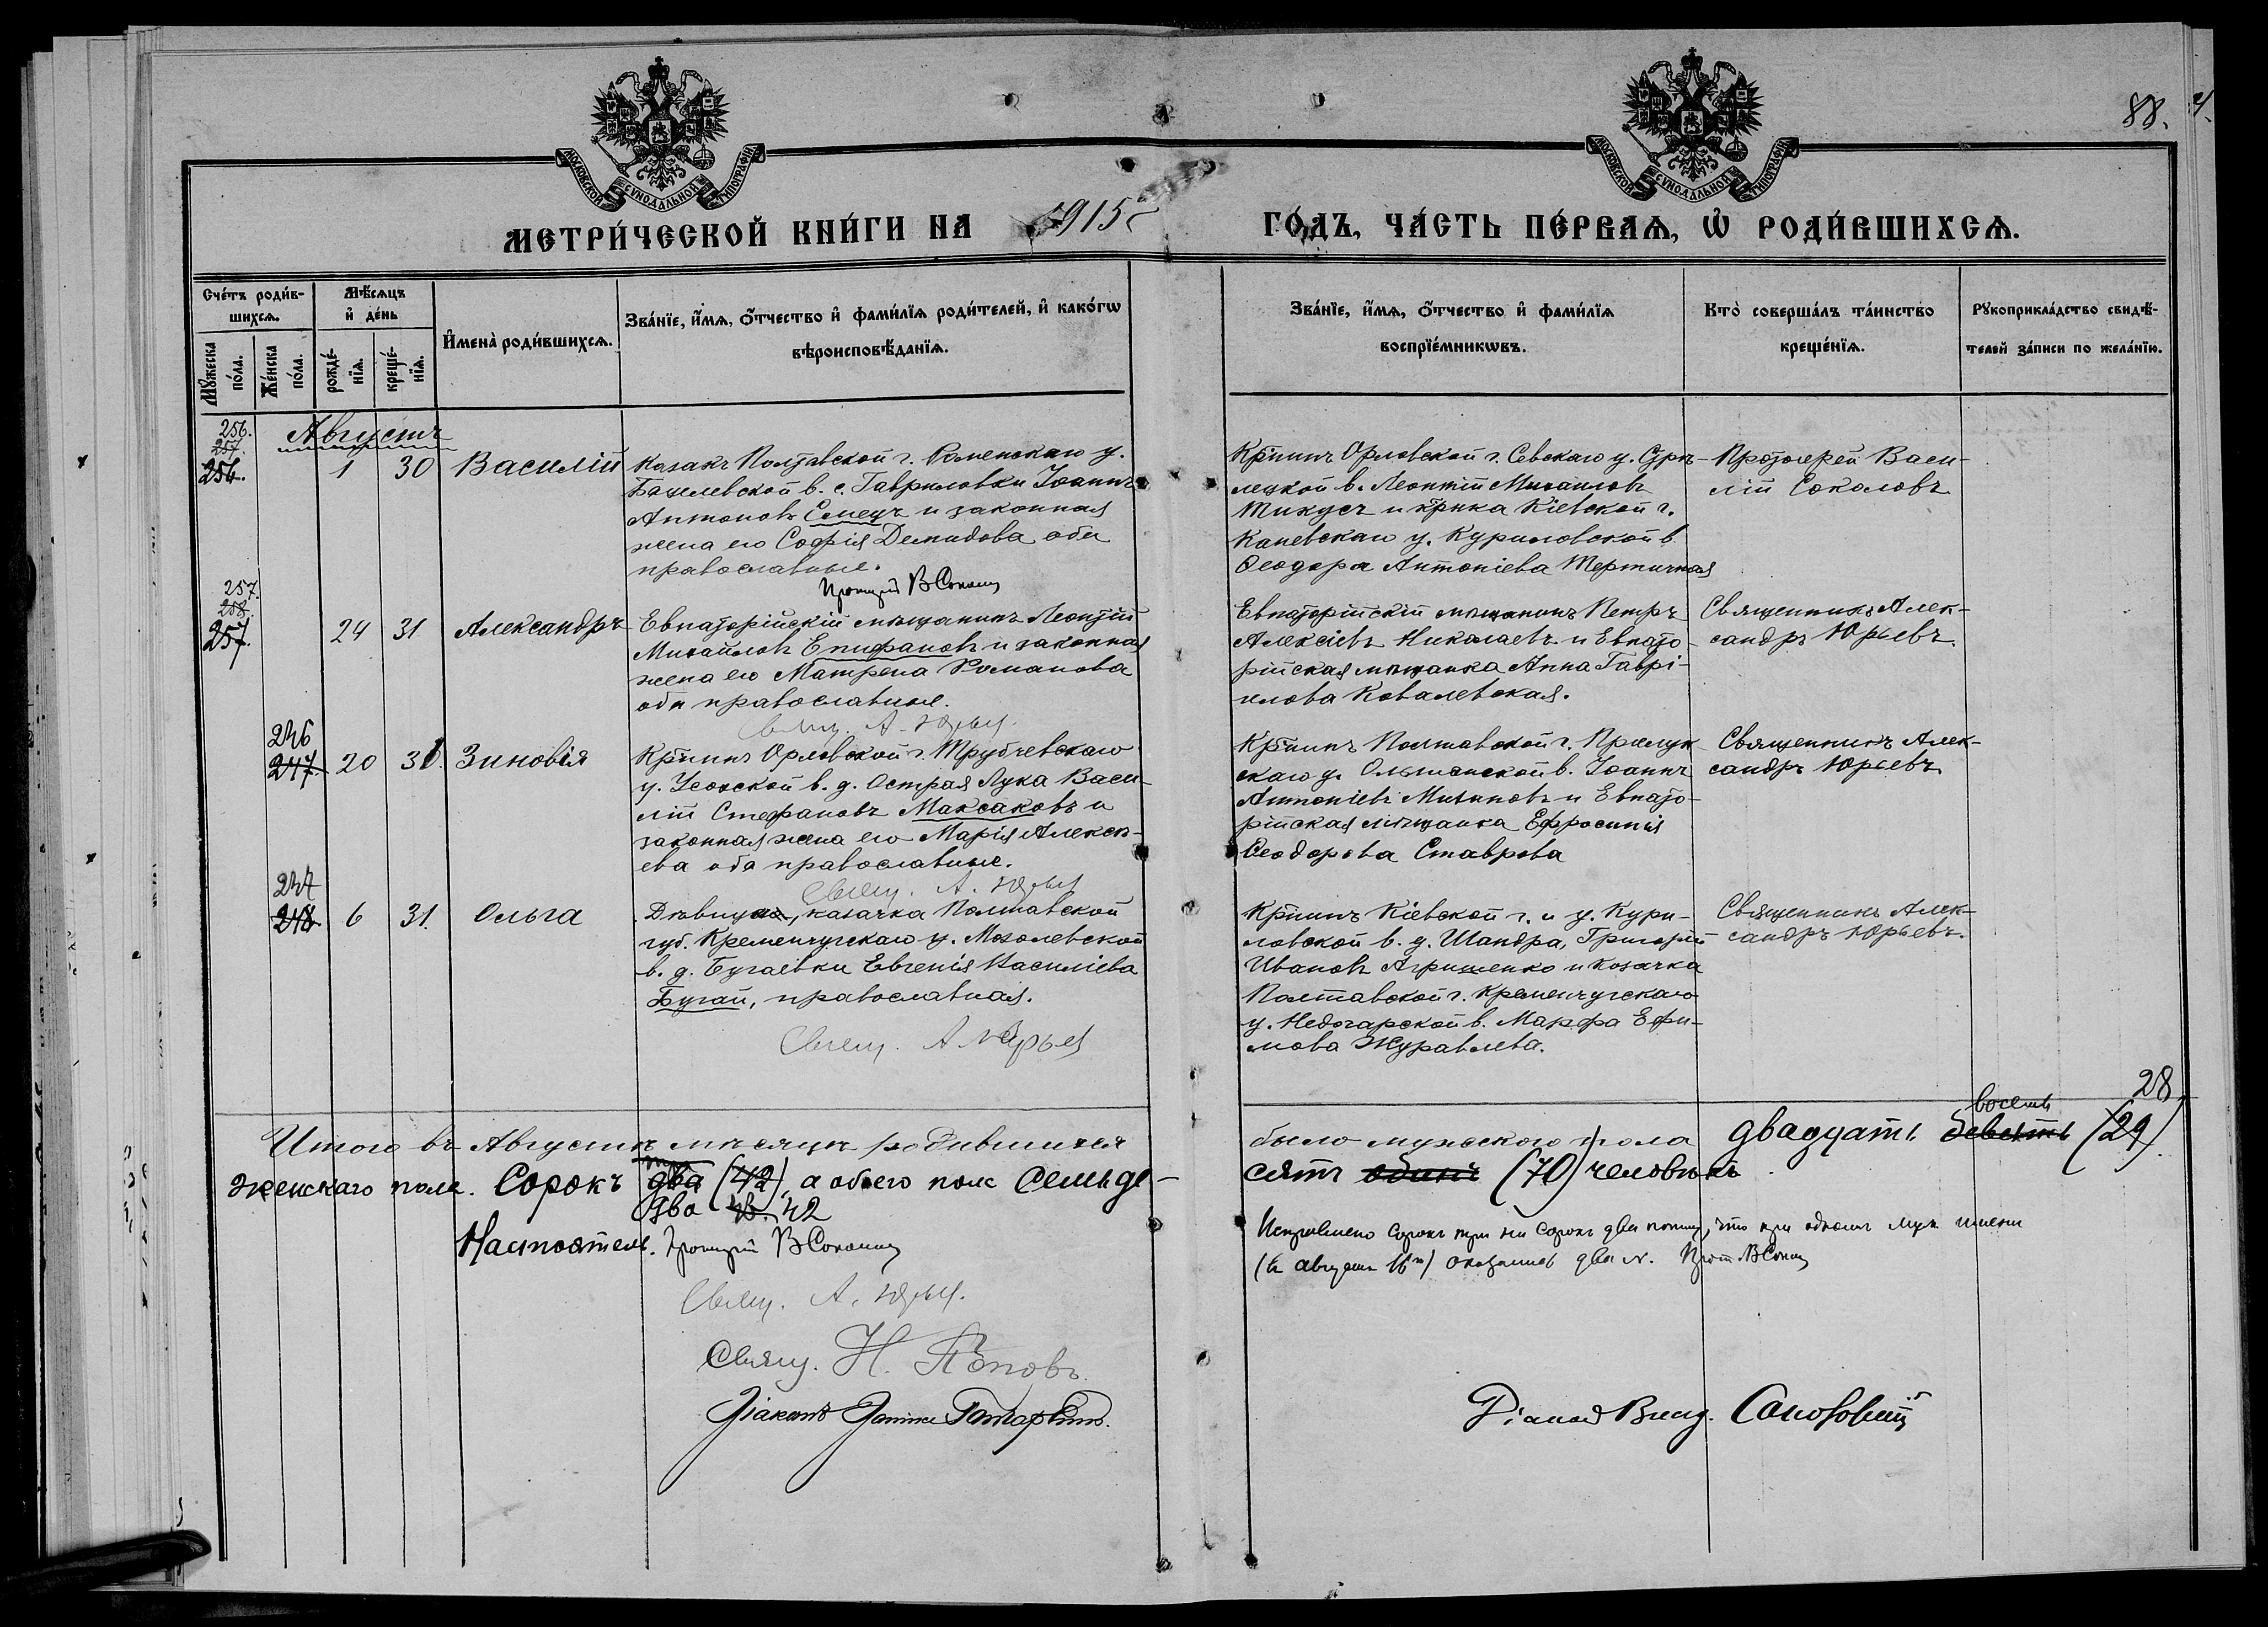 88.
МОСКОВСКОЙ СУНОДАЛЬНОЙ ТИПОГРАФІИ
МОСКОВСКОЙ СУНОДАЛЬНОЙ ТИПОГРАФІИ
МЕТРИ́ЧЕСКОЙ КНИ́ГИ НА 1915 ГО́ДЪ, ЧА́СТЬ ПЕ́РВАѦ, Ѡ҆ РОДИ́ВШИХСѦ.
Сче́тъ роди́в-
шихсѧ.
Мѣ́сѧцъ
и҆ де́нь
Мꙋ́жеска
по́ла.
Же́нска
по́ла.
рожде́-
нїѧ.
креще́-
нїѧ.
И҆мена̀ роди́вшихсѧ.
Зва́нїе, и҆́мѧ, ѻ҆́тчество и҆ фами́лїѧ роди́телей, и҆ како́гѡ
вѣроисповѣ́данїѧ.
Зва́нїе, и҆́мѧ, ѻ҆́тчество и҆ фами́лїѧ
воспрїе́мникѡвъ.
Кто̀ соверша́лъ та́инство
креще́нїѧ.
Рꙋкоприкла́дство свидѣ́-
телей за́писи по жела́нїю.
Августъ
256.
257.
256.
1 30 Василій
Козакъ Полтавской г. Роменскаго у.
Бацелевской в. с. Гавриловки Іоаннъ
Антоновъ Семецъ и законная
жена его Софія Демидова оба
православные.
Протоіерей В Соколовъ
Кр̄нинъ Орловской г. Севскаго у. Стрѣ-
лецкой в. Леонтій Михаиловъ
Тикусъ и кр̄нка Кіевской г.
Каневскаго у. Куриловской в.
Ѳеодора Антоніева Тертичная
Протоіерей Васи-
лій Соколовъ
257.
258.
257.
24 31 Александръ
Евпаторійскій мѣщанинъ Леонтій
Михайловъ Епифановъ и законная
жена его Матрена Романова
оба православные.
Свящ. А. Юрьев
Евпаторійскій мѣщанинъ Петръ
Алексіевъ Николаевъ и Евпато-
рійская мѣщанка Анна Гаврі-
илова Ковалевская.
Священникъ Алек-
сандръ Юрьевъ
246
247. 20 31. Зиновія
Кр̄нинъ Орловской г. Трубчевскаго
у. Усохской в. д. Острая Лука Васи-
лій Стефановъ Максаковъ и
законная жена его Марія Алексѣ-
ева оба православные.
Свящ. А. Юрьев
Кр̄нинъ Полтавской г. Прилук-
скаго у. Ольшанской в. Іоаннъ
Антоніевъ Михновъ и Евпато-
рійская мѣщанка Ефросинія
Ѳеодорова Ставрова
Священникъ Алек-
сандръ Юрьевъ
247
248 6 31. Ольга
Дѣвица, казачка Полтавской
губ. Кременчугскаго у. Мозолевской
в. д. Бугаевки Евгенія Василіева
Бугай, православная.
Свящ. А Юрьев
Кр̄нинъ Кіевской г. и у. Кури-
ловской в. д. Шандра, Григорій
Ивановъ Агришенко и козачка
Полтавской г. Кременчугскаго
у. Недогарской в. Марфа Ефи-
мова Журавлева.
Священникъ Алек-
сандръ Юрьевъ.
Итого въ Августѣ мѣсяцѣ родившихся было мужеского пола двадцать девять восемь (29) 28
женскаго пола. Сорокъ два (42), а обоего пола Семьде-
сятъ одинъ (70) человѣкъ
два 42
Настоятель. Протоіерей В Соколовъ
Исправлено Сорокъ три на Сорокъ два потому, что при одномъ имени
(въ августѣ 16го) оказались два №. Прот. В Соколовъ
Свящ. А. Юрьев.
Свящ. Н. Поповъ.
Діаконъ